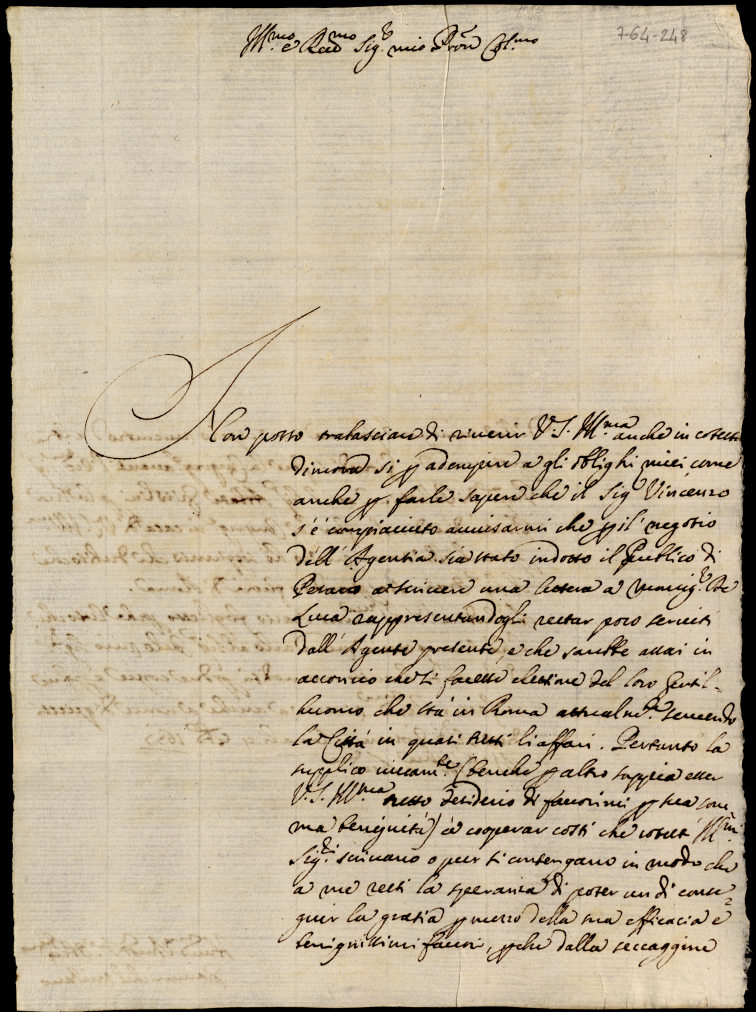 Ill.mo e Rev.mo Sig.r mio Pron Col.mo
7-64-248
Non posso tralasciare di riuerir V. S. Ill.ma anche in cotesta
dimora si p adempire a gli oblighi miei come
anche p farle sapere che il Sig. Vincenzo
s'è compiaciuto auuisarmi che p il negotio
dell'Agentia sia stato indotto il Publico di
Pesaro a scriuere una lettera a Monsig.r De
Luca rappresentandogli restar poco seruiti
dall'Agente presente, e che sarebbe assai in
acconcio che si facesse elettione del loro Gentil-
huomo, che stà in Roma attualm.te seruendo
la Città in quasi tutti li affari. Pertanto la
supplico (benche p altro sappia esser
V. S. Ill.ma desiderio di fauorirmi p sua som
ma benignità) à cooperar costì che cotesti Ill.mi
Sig.ri scriuano o pur si contengano in modo che
a me resti la speranza di poter un dì conse=
guir la gratia p mezzo della sua efficacia e
benignissimi fauori, pche dalla seccaggine